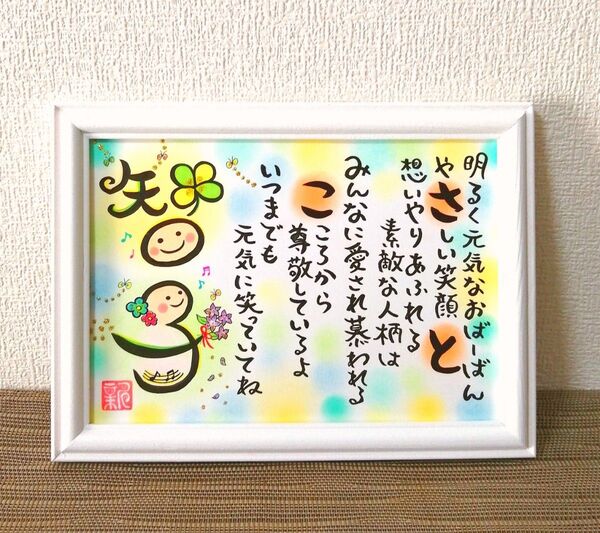 明るく元気なおばーばん
やさしい笑顔と
想いやりあふれる
素敵な人柄は
みんなに愛され慕われる
こころから
尊敬しているよ
いつまでも
元気に笑っていてね
智子